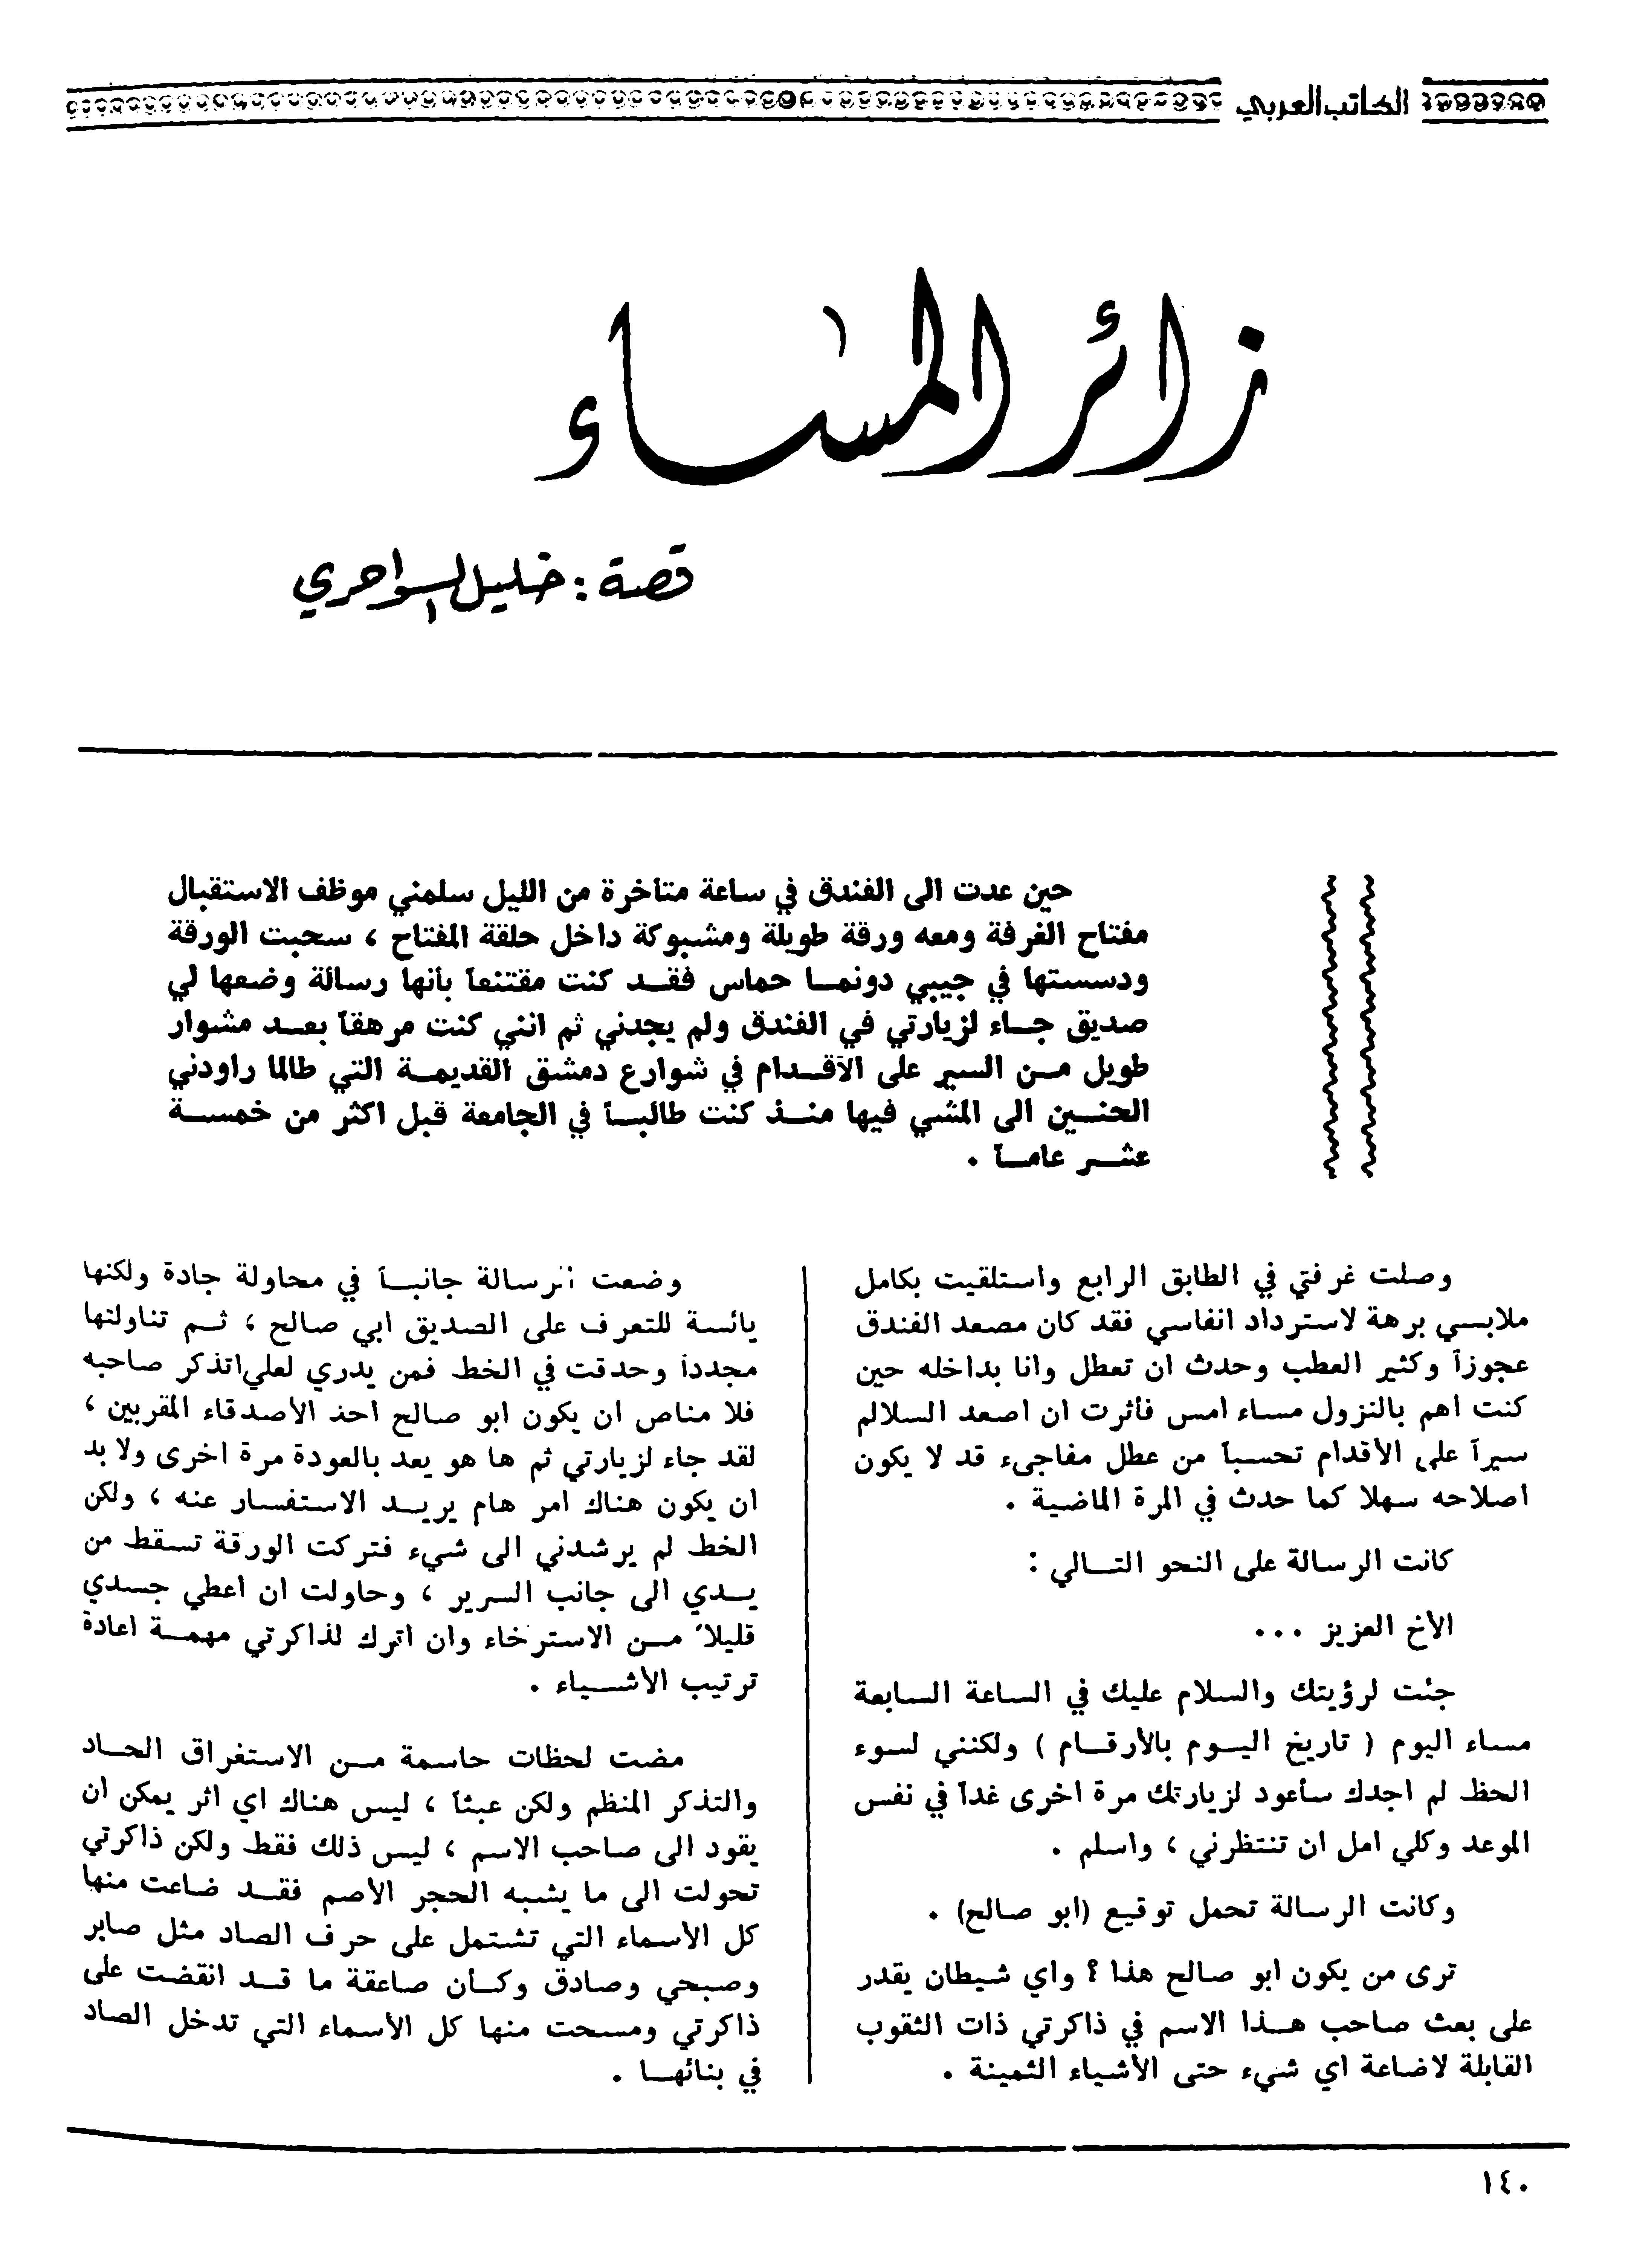 الكاتب العربي
زائر المساء
قصة : خليل السواحري
حين عدت الى الفندق في ساعة متأخرة من الليل سلمني موظف الاستقبال
مفتاح الغرفة ومعه ورقة طويلة ومشبوكة داخل حلقة المفتاح ، سحبت الورقة
ودسستها في جيبي دونمـا حماس فقـد كنت مقتنعاً بأنها رسالة وضعها لي
صديق جـاء لزيارتي في الفندق ولم يجدني ثم انني كنت مرهقاً بعـد مشوار
طويل مـن السير على الأقـدام في شوارع دمشق القديمـة التي طالما راودني
الحنـين الى المشي فيها منـذ كنت طالبـاً في الجامعة قبل اكثر من خمسـة
عشـر عامـاً .
وصلت غرفتي في الطابق الرابع واستلقيت بكامل
ملابسي برهة لاسترداد انفاسي فقد كان مصعد الفندق
عجوزاً وكثير العطب وحدث ان تعطل وانا بداخله حين
كنت اهم بالنزول مساء امس فآثرت ان اصعد السلالم
سيراً على الأقدام تحسباً من عطل مفاجىء قد لا يكون
اصلاحه سهلا كما حدث في المرة الماضية .
كانت الرسالة على النحو التـالي :
الأخ العزيز ...
جئت لرؤيتك والسلام عليك في الساعة السابعة
مساء اليوم ( تاريخ اليـوم بالأرقـام ) ولكنني لسوء
الحظ لم اجدك سأعود لزيارتك مرة اخرى غداً في نفس
الموعد وكلي امل ان تنتظرني ، واسلم .
وكانت الرسالة تحمل توقيع (ابو صالح) .
ترى من يكون ابو صالح هذا ؟ واي شيطان يقدر
على بعث صاحب هـذا الاسم في ذاكرتي ذات الثقوب
القابلة لاضاعة اي شيء حتى الأشياء الثمينة .
وضعت الرسالة جانبـاً في محاولة جادة ولكنها
يائسة للتعرف على الصديق ابي صالح ، ثـم تناولتها
مجدداً وحدقت في الخط فمن يدري لعلي اتذكر صاحبه
فلا مناص ان يكون ابو صالح احد الأصدقاء المقربين ،
لقد جاء لزيارتي ثم ها هو يعد بالعودة مرة اخرى ولا بد
ان يكون هناك امر هام يريـد الاستفسار عنه ، ولكن
الخط لم يرشدني الى شيء فتركت الورقة تسقط من
يـدي الى جانب السرير ، وحاولت ان اعطي جسدي
قليلاً مـن الاسترخاء وان اترك لذاكرتي مهمـة اعادة
ترتيب الأشـياء .
مضت لحظات حاسمة مـن الاستغراق الحـاد
والتذكر المنظم ولكن عبثاً ، ليس هناك اي اثر يمكن ان
يقود الى صاحب الاسم ، ليس ذلك فقط ولكن ذاكرتي
تحولت الى ما يشبه الحجر الأصم فقـد ضاعت منها
كل الأسماء التي تشتمل على حرف الصاد مثل صابر
وصبحي وصادق وكـأن صاعقة ما قـد انقضت على
ذاكرتي ومسحت منها كل الأسماء التي تدخل الصاد
في بنائهـا .
١٤٠